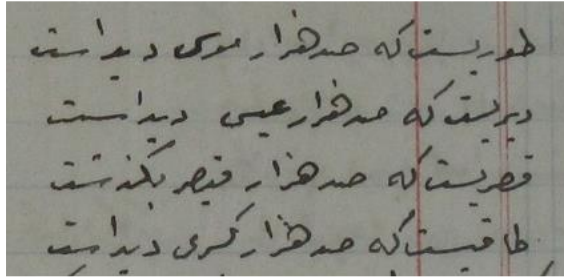 طوریست که صد هزار موسی دیداست
دیریست که صد هزار عیسی دیداست
قصریست که صد هزار قیصر بگذشت
طاقیست که صد هزار کسری دیداست